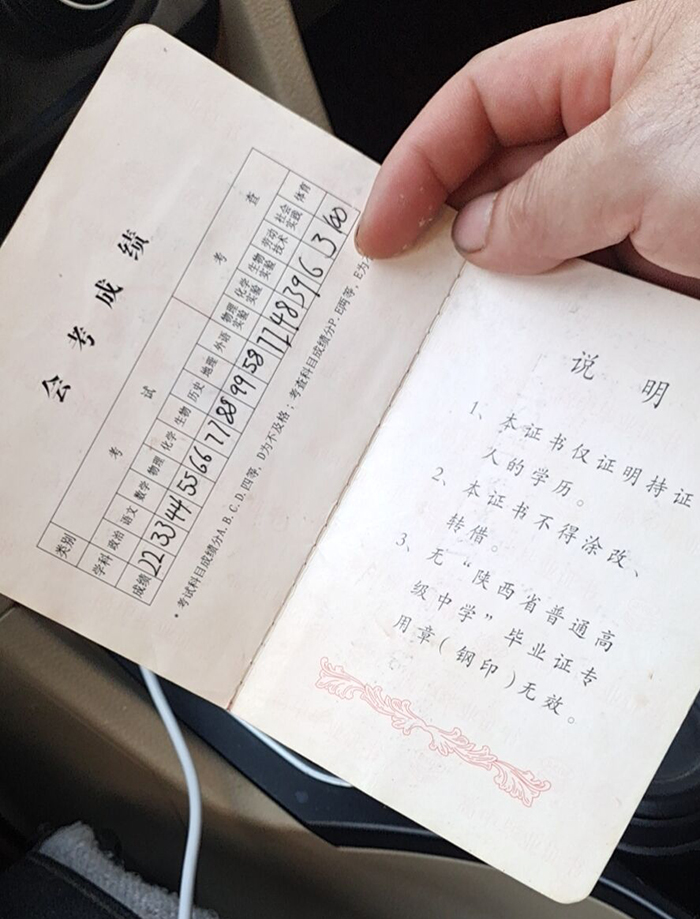 会考成绩
类别 考试 考查
学科 政治 语文 数学 物理 化学 生物 历史 地理 外语 物理实验 化学实验 生物实验 劳动技术 社会实践 体育
成绩 22 33 44 55 66 77 88 99 58
•考试科目成绩分A.B.C.D.四等，D为不及格；考查科目成绩分P.E两等，E为
说明
1、本证书仅证明持证
人的学历。
2、本证书不得涂改、
转借。
3、无“陕西省普通高
级中学”毕业证专
用章(钢印)无效。